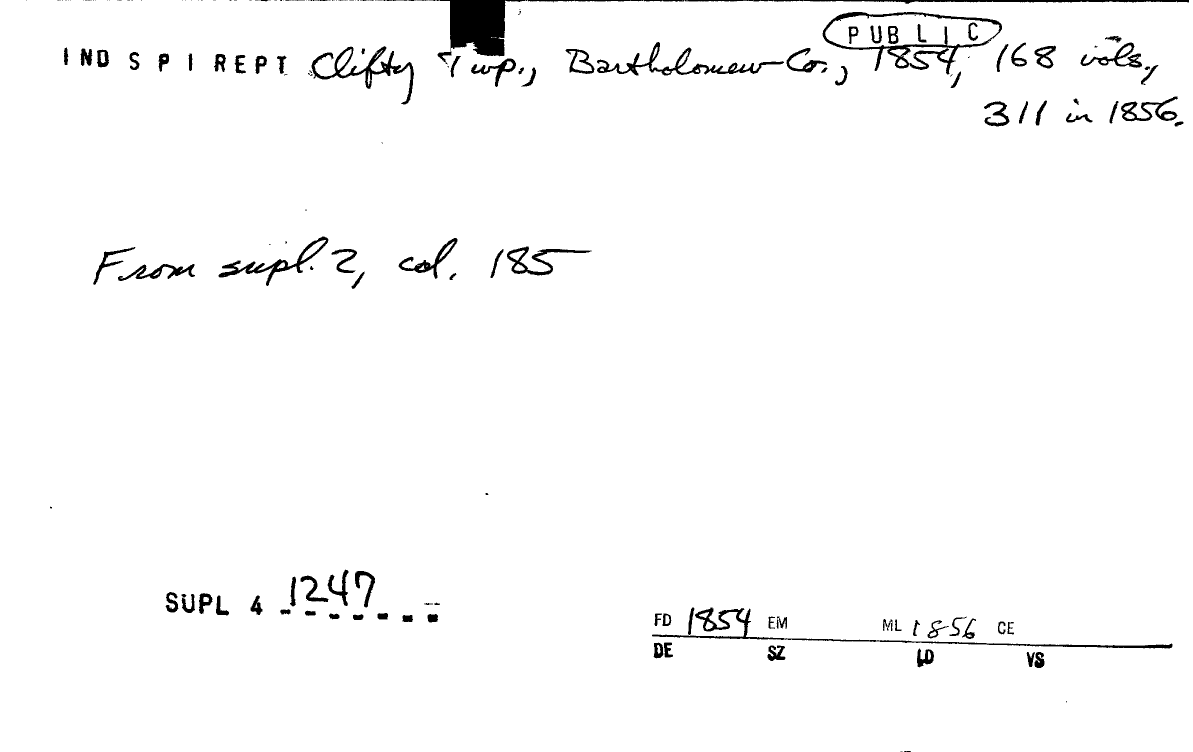 PUBLIC
IND S P I REPT Clifty Twp., Bartholomew Co., 1854, 168 vols.,
311 in 1856.
From supl. 2, col. 185
SUPL 4 1247
FD 1854 EM ML 1856 CE
DE SZ LD VS